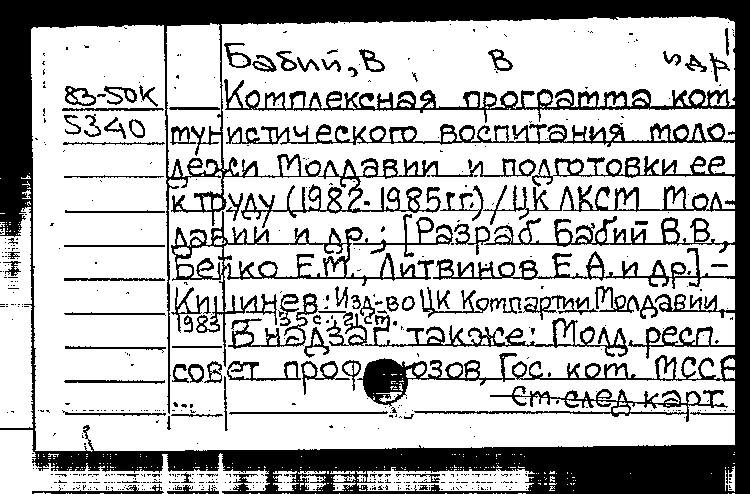 Бабий, В В и др
83-50К Комплексная программа ком-
5340 мунистического воспитания моло-
дежи Молдавии и подготовки ее
к труду (1982-1985гг.) / ЦК ЛКСМ Мол-
давии и др.; [Разраб. Бабий В.В.,
Бейко Е.М., Литвинов Е.А. и др.].-
Кишинев: Изд-во ЦК Компартии Молдавии,
1983 35 с., 21 см.
В надзаг. также: Молд. респ.
совет профсоюзов, Гос. ком. МССР
... См. след. карт.